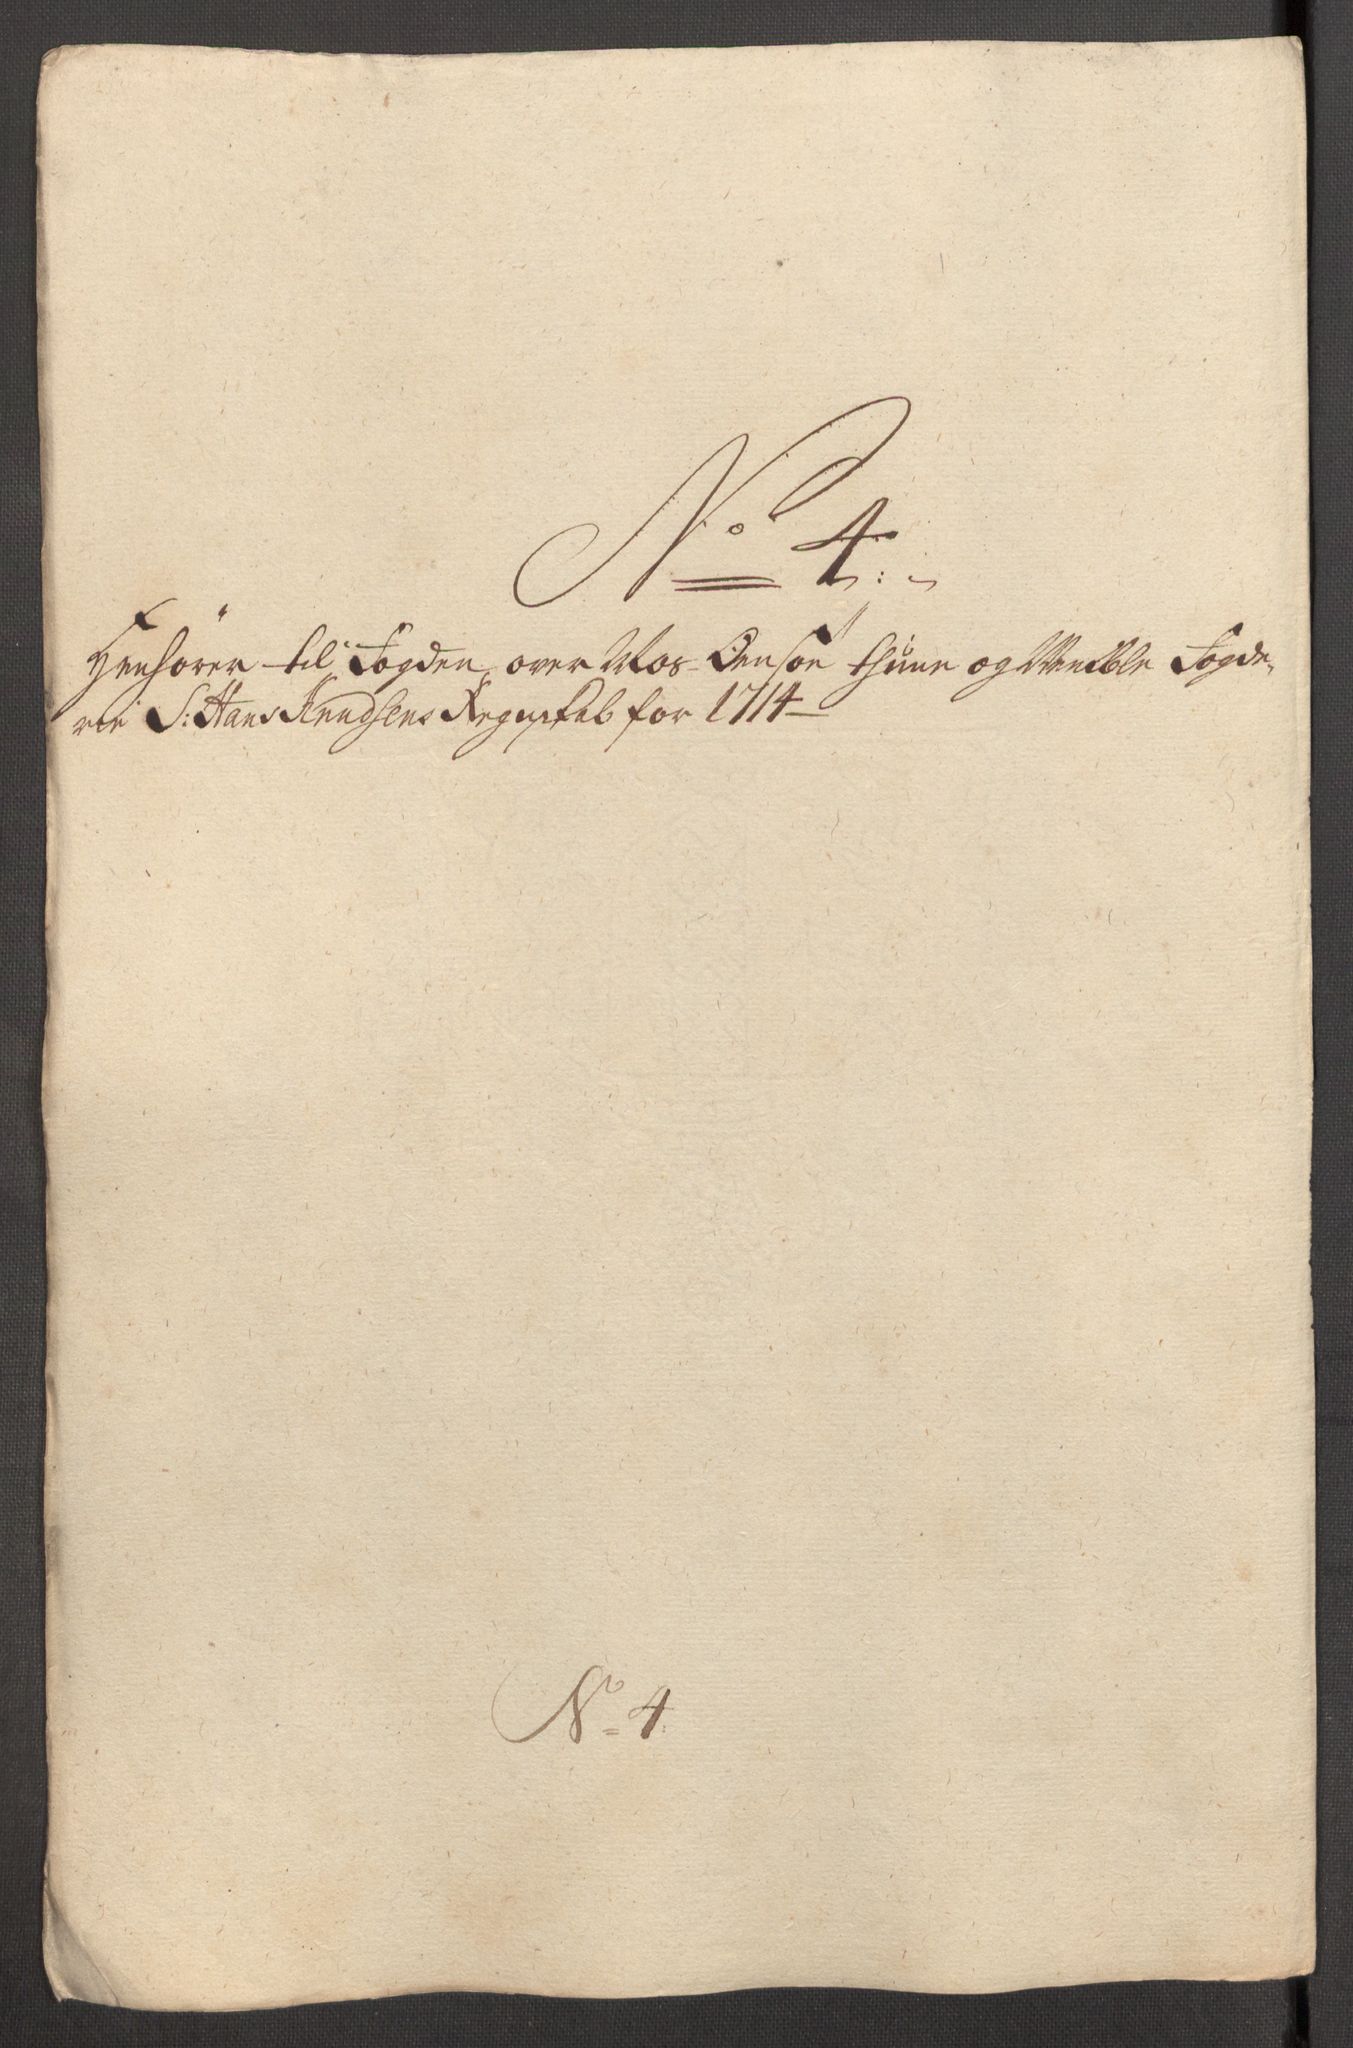 No 4:
Henhörer til Fogden over Mos Onsøe thune og Wemble Fogde-
rie S: Hans Knudsens Regnskab for 1714
No 4